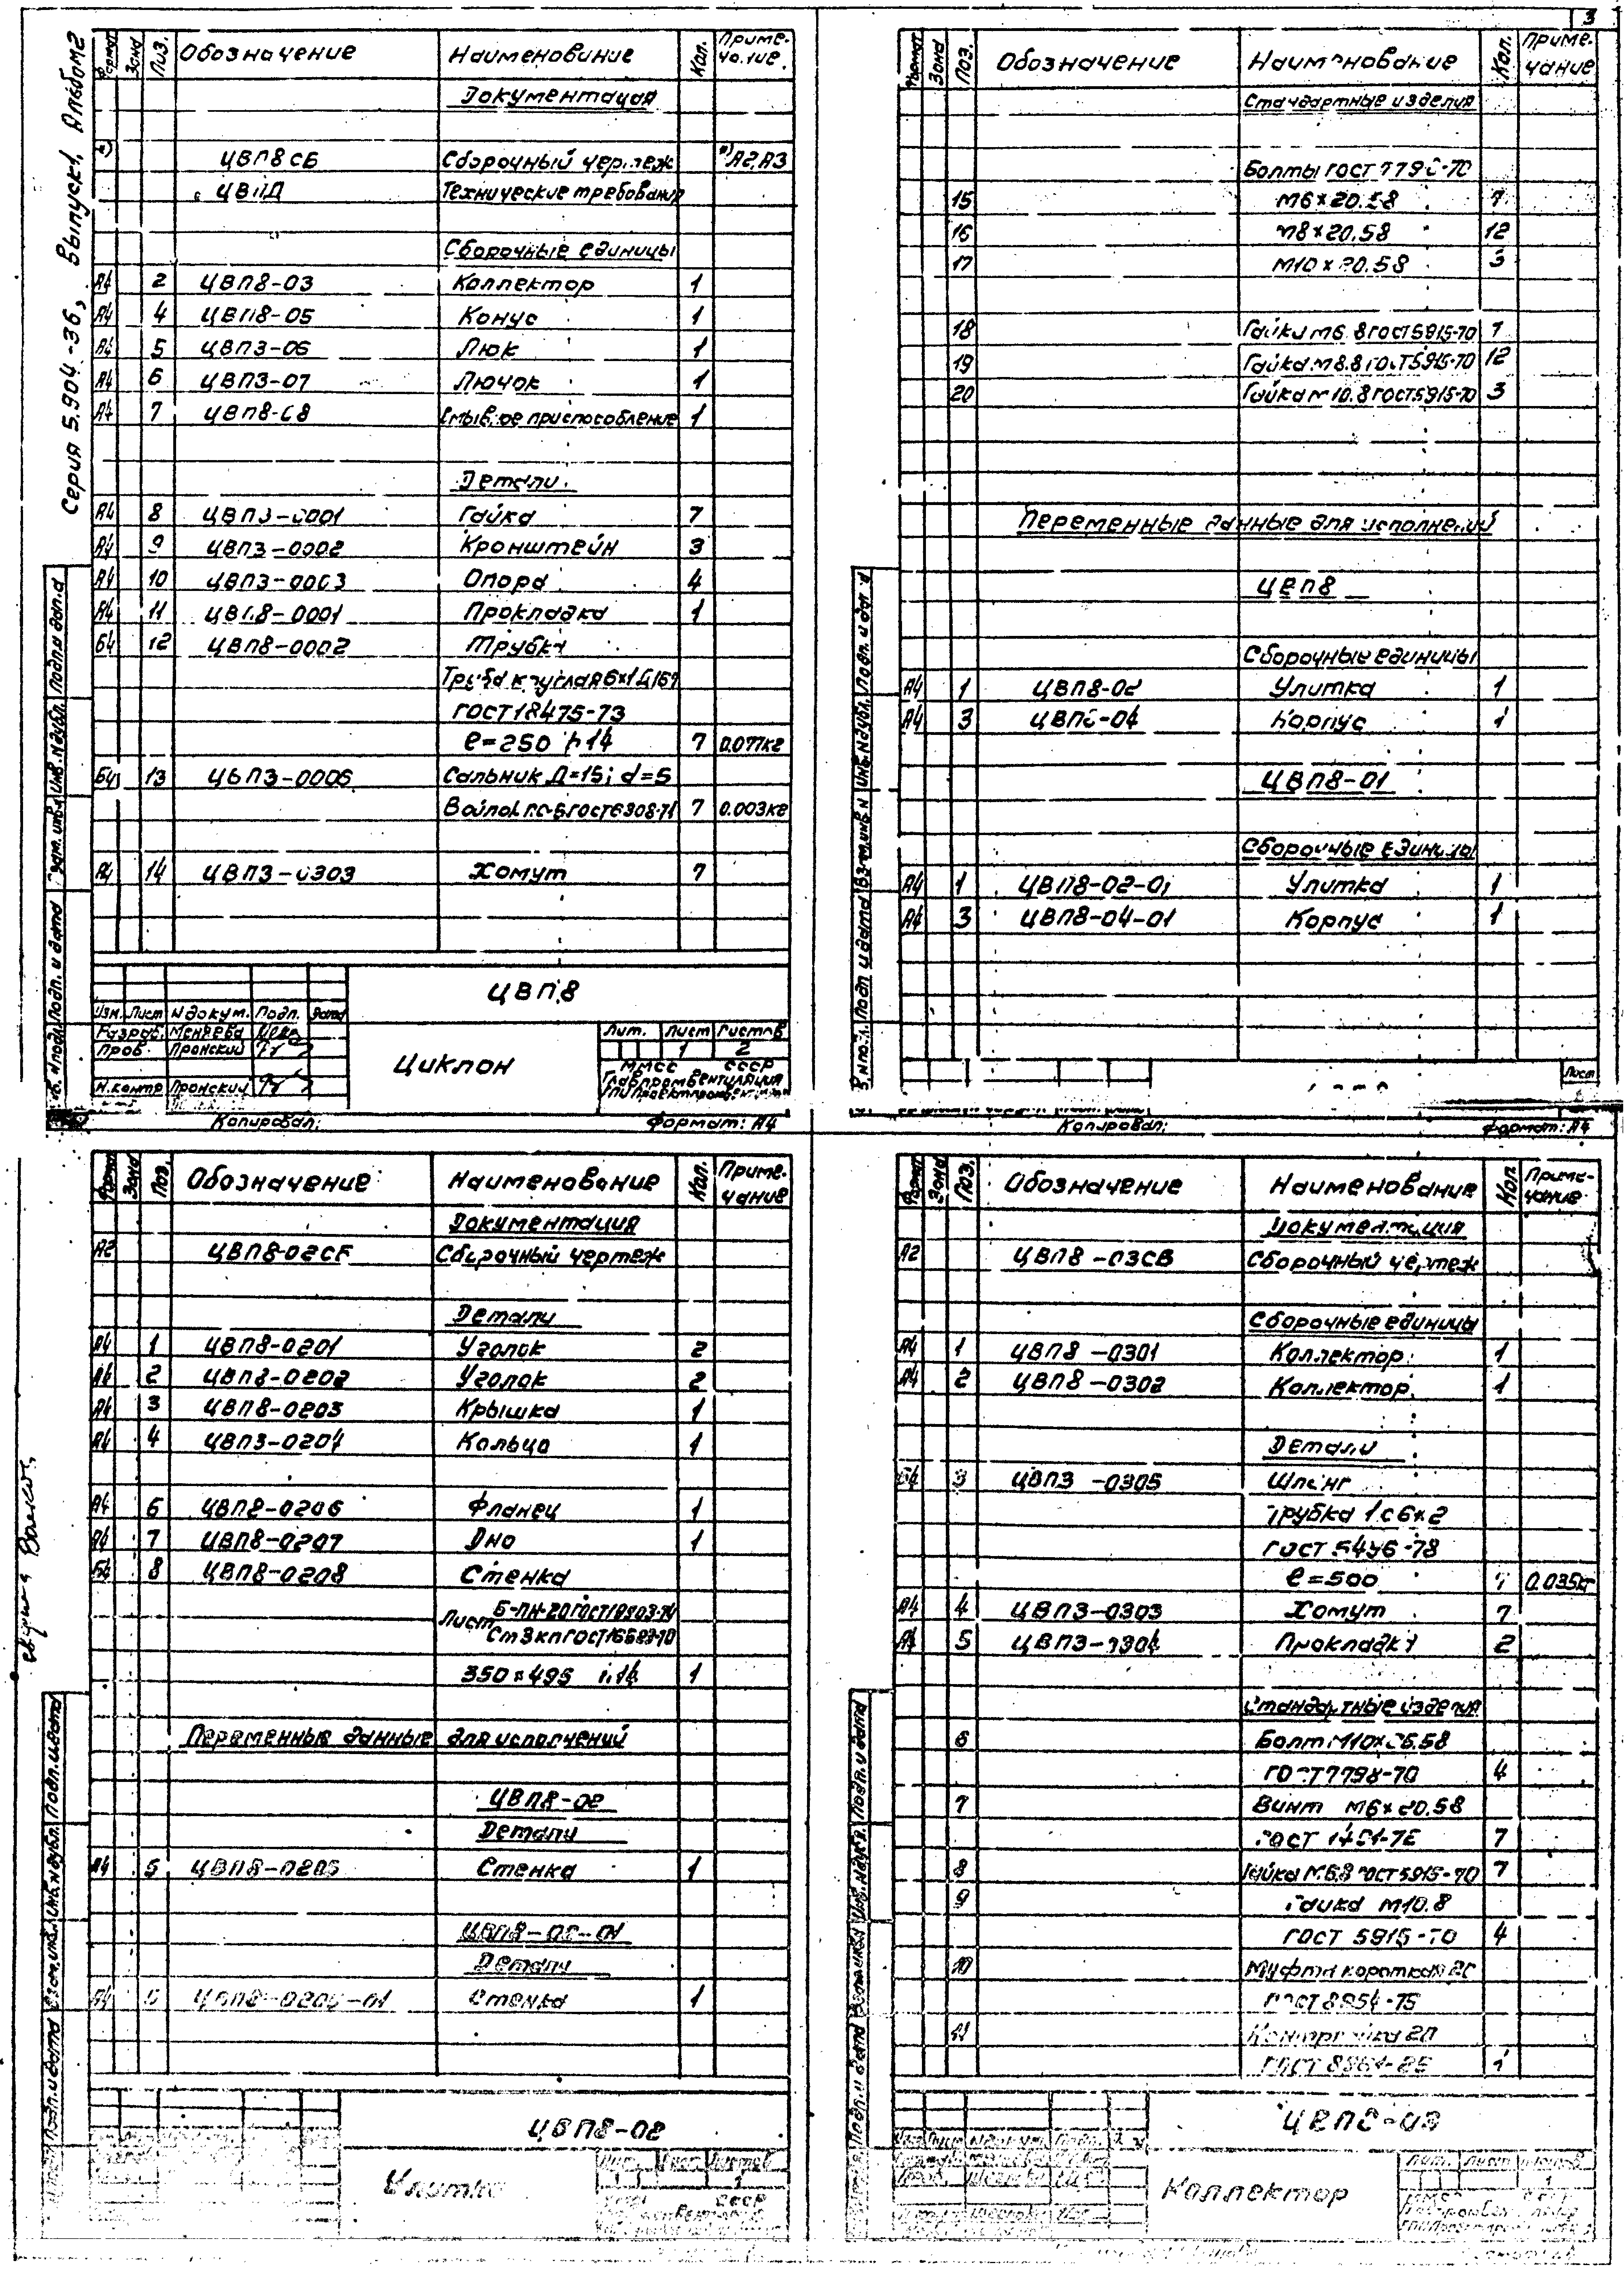 3
Серия 5.904-36, Выпуск 1, Альбом 2
Формат Зона Поз. Обозначение Наименование Кол. Примечание
Документация
*) ЦВП8СБ Сборочный чертеж *) А2,А3
ЦВПД Технические требования
Сборочные единицы
А4 2 ЦВП8-03 Коллектор 1
А4 4 ЦВП8-05 Конус 1
А4 5 ЦВП3-06 Люк 1
А4 6 ЦВП3-07 Лючок 1
А4 7 ЦВП8-08 Смывное приспособление 1
Детали
А4 8 ЦВП3-0001 Гайка 7
А4 9 ЦВП3-0002 Кронштейн 3
А4 10 ЦВП3-0003 Опора 4
А4 11 ЦВП8-0001 Прокладка 1
Б4 12 ЦВП8-0002 Трубка
Труба круглая 6х1
ГОСТ 18475-73
ℓ=250 h14 7 0.077кг
Б4 13 ЦВП3-0006 Сальник Д=15; d=5
Войлок ГОСТ 6308-71 7 0.003кг
А4 14 ЦВП3-0303 Хомут 7
ЦВП8
Изм. Лист N докум. Подп. Дата
Разраб.
Пров. Пронский
Н.контр Пронский
Циклон
Лит. Лист Листов
1 2
ММСС СССР
Главпромвентиляция
Копировал: Формат: А4
Формат Зона Поз. Обозначение Наименование Кол. Примечание
Стандартные изделия
Болты ГОСТ 7798-70
15 М6х20.58 7
16 М8х20.58 12
17 М10х20.58 3
18 Гайка М6.8 ГОСТ 5915-70 7
19 Гайка М8.8 ГОСТ 5915-70 12
20 Гайка М10.8 ГОСТ 5915-70 3
Переменные данные для исполнений
ЦВП8
Сборочные единицы
А4 1 ЦВП8-02 Улитка 1
А4 3 ЦВП8-04 Корпус 1
ЦВП8-01
Сборочные единицы
А4 1 ЦВП8-02-01 Улитка 1
А4 3 ЦВП8-04-01 Корпус 1
Лист
Копировал: Формат: А4
Формат Зона Поз. Обозначение Наименование Кол. Примечание
Документация
А2 ЦВП8-02СБ Сборочный чертеж
Детали
А4 1 ЦВП8-0201 Уголок 2
А4 2 ЦВП8-0202 Уголок 2
А4 3 ЦВП8-0203 Крышка 1
А4 4 ЦВП3-0204 Кольцо 1
А4 6 ЦВП8-0206 Фланец 1
А4 7 ЦВП8-0207 Дно 1
Б4 8 ЦВП8-0208 Стенка
Лист Б-ПН-2.0 ГОСТ 19903-74
Ст3кп ГОСТ 16523-70
350х495 h14 1
Переменные данные для исполнений
ЦВП8-02
Детали
А4 5 ЦВП8-0205 Стенка 1
ЦВП8-02-01
Детали
А4 5 ЦВП8-0205-01 Стенка 1
ЦВП8-02
Улитка
Формат Зона Поз. Обозначение Наименование Кол. Примечание
Документация
А2 ЦВП8-03СБ Сборочный чертеж
Сборочные единицы
А4 1 ЦВП8-0301 Коллектор 1
А4 2 ЦВП8-0302 Коллектор 1
Детали
Б4 3 ЦВП3-0305 Шланг
Трубка 1с 6х2
ГОСТ 5496-78
ℓ=500 7 0.035кг
А4 4 ЦВП3-0303 Хомут 7
А4 5 ЦВП3-0304 Прокладка 2
Стандартные изделия
6 Болт
ГОСТ 7798-70 4
7 Винт М6х20.58
ГОСТ 7
8 Гайка М6.8 ГОСТ 5915-70 7
9 Гайка М10.8
ГОСТ 5915-70 4
10 Муфта короткая
ГОСТ 8954-75
11 Контргайка 20
ГОСТ 1
ЦВП8-03
Коллектор